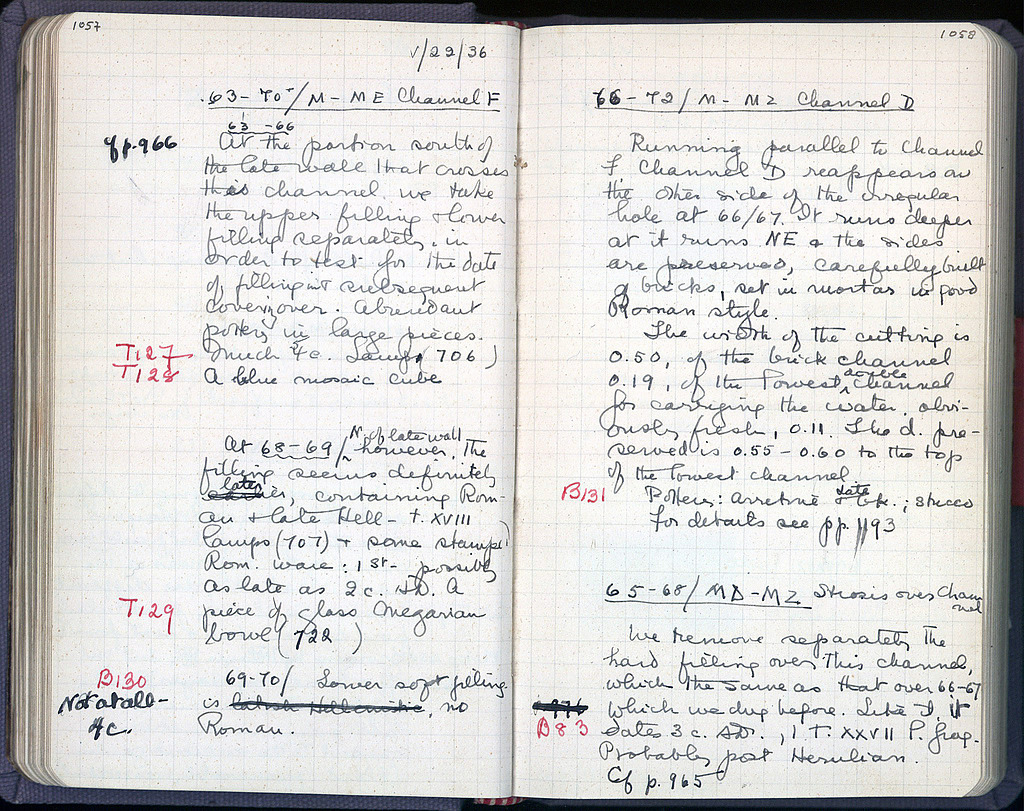 1057
V/22/36
63-70/M-ME Channel F
63-66
cf p. 966
At the portion south of
the late wall that crosses
this channel we take
the upper filling & lower
filling separately, in
order to test for the date
of filling & subsequent
cover over. Abundant
pottery in large pieces.
T127
much 4c. Lamp 706)
T128
A blue mosaic cube
N. of late wall
At 68-69/ however, the
filling seems definitely
later, containing Rom-
an & late Hell- t. XVIII
lamps (707) & some stamped
Rom. ware: 1st - possibly
as late as 2c. AD. A
T129
piece of glass Megarian
bowl (722 )
B130
69-70/ Lower soft filling
Not at all-
is late Hellenistic, no
4c.
Roman.
1058
66-72/M-MZ Channel D
Running parallel to Channel
F, Channel D reappears on
the other side of the irregular
hole at 66/67. It runs deeper
at it runs NE & the sides
are preserved, carefully built
of bricks, set in mortar in good
Roman style.
The width of the cutting is
0.50, of the brick channel
0.19, of the lowest channel
for carrying the water, obvi-
ously fresh, 0.11. The d. pre-
served is 0.55-0.60 to the top
of the lowest channel.
B131
Pottery: Arretine & late Gk.; stucco
For details see pp. 1193
65-68/MD-MZ Strosis over Chan-
nel
We remove separately the
hard filling over this channel,
which the same as that over 66-67
which we dug before. Like it, it
B83
dates 3 c. AD., 1 T. XXVII l. frag.
Probably post Herulian.
Cf p. 965